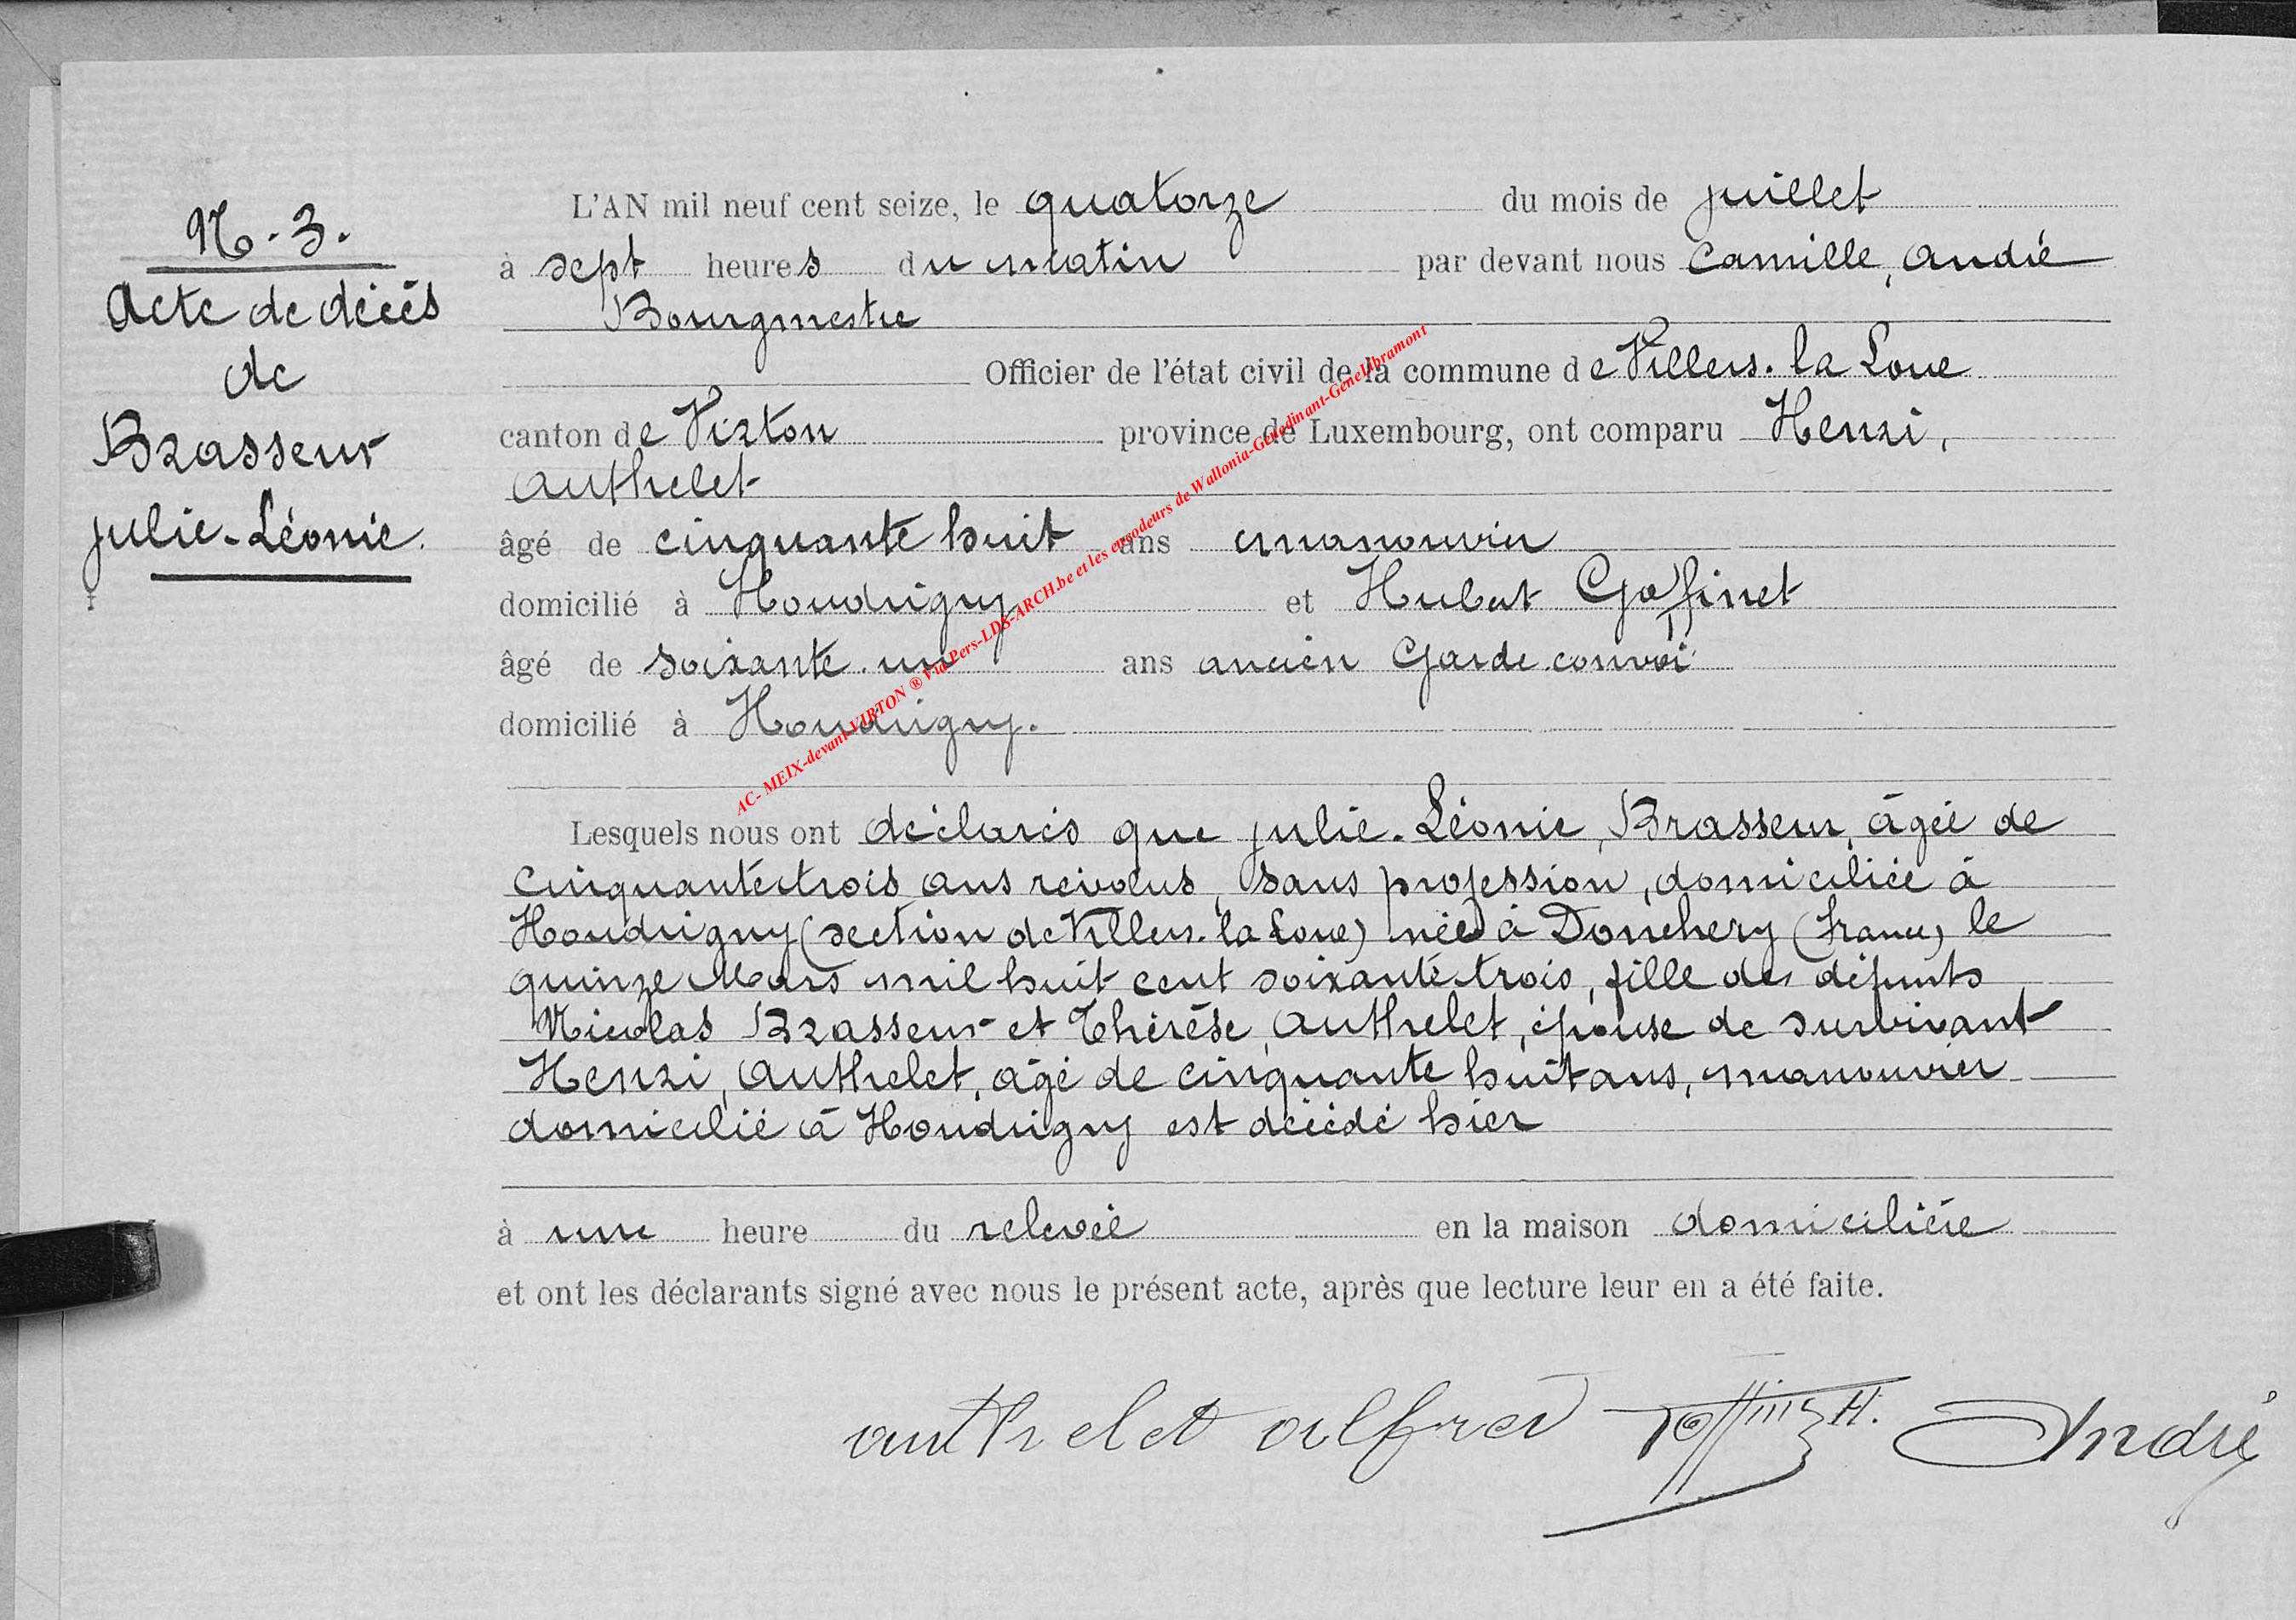 N. 3.
Acte de décès
de
Brasseur
julie-Léonie.
L'AN mil neuf cent seize, le quatorze du mois de juillet
à sept heures du matin par devant nous Camille, André
Bourgmestre
Officier de l'état civil de la commune de Villers-la Loue
canton de Virton province de Luxembourg, ont comparu Henri,
Authelet
âgé de cinquante huit ans manouvrier
domicilié à Houdrigny et Hubert Goffinet
âgé de soixante un ans ancien Garde convoi
domicilié à Houdrigny.
Lesquels nous ont déclarés que julie-Léonie, Brasseur, âgée de
cinquante trois ans révolus, sans profession, domiciliée à
Houdrigny (section de Villers-la Loue) née à Donchery (france) le
quinze Mars mil huit cent soixante trois, fille des défunts
Nicolas Brasseur et Thérèse, Authelet, épouse de survivant
Henri, Authelet, âgé de cinquante huit ans, manouvrier
domicilié à Houdrigny est décédé hier
à une heure du relevée en la maison domicilière
et ont les déclarants signé avec nous le présent acte, après que lecture leur en a été faite.
authelet alfred Goffinet H. André
AC- MEIX-devant-VIRTON ® Via Pers-LDS-ARCH.be et les encodeurs de Wallonia-Genedinant-GeneLibramont